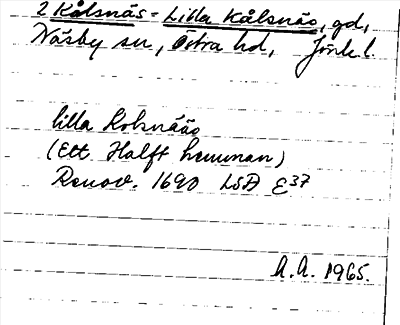 2 Kålsnäs = Lilla Kålsnäs, gd,
Näsby sn, Östra hd, Jönk.l.
lilla Kolsnääs
(Ett Halft hemman)
Renov. 1690 LSA E37
A.A. 1965.